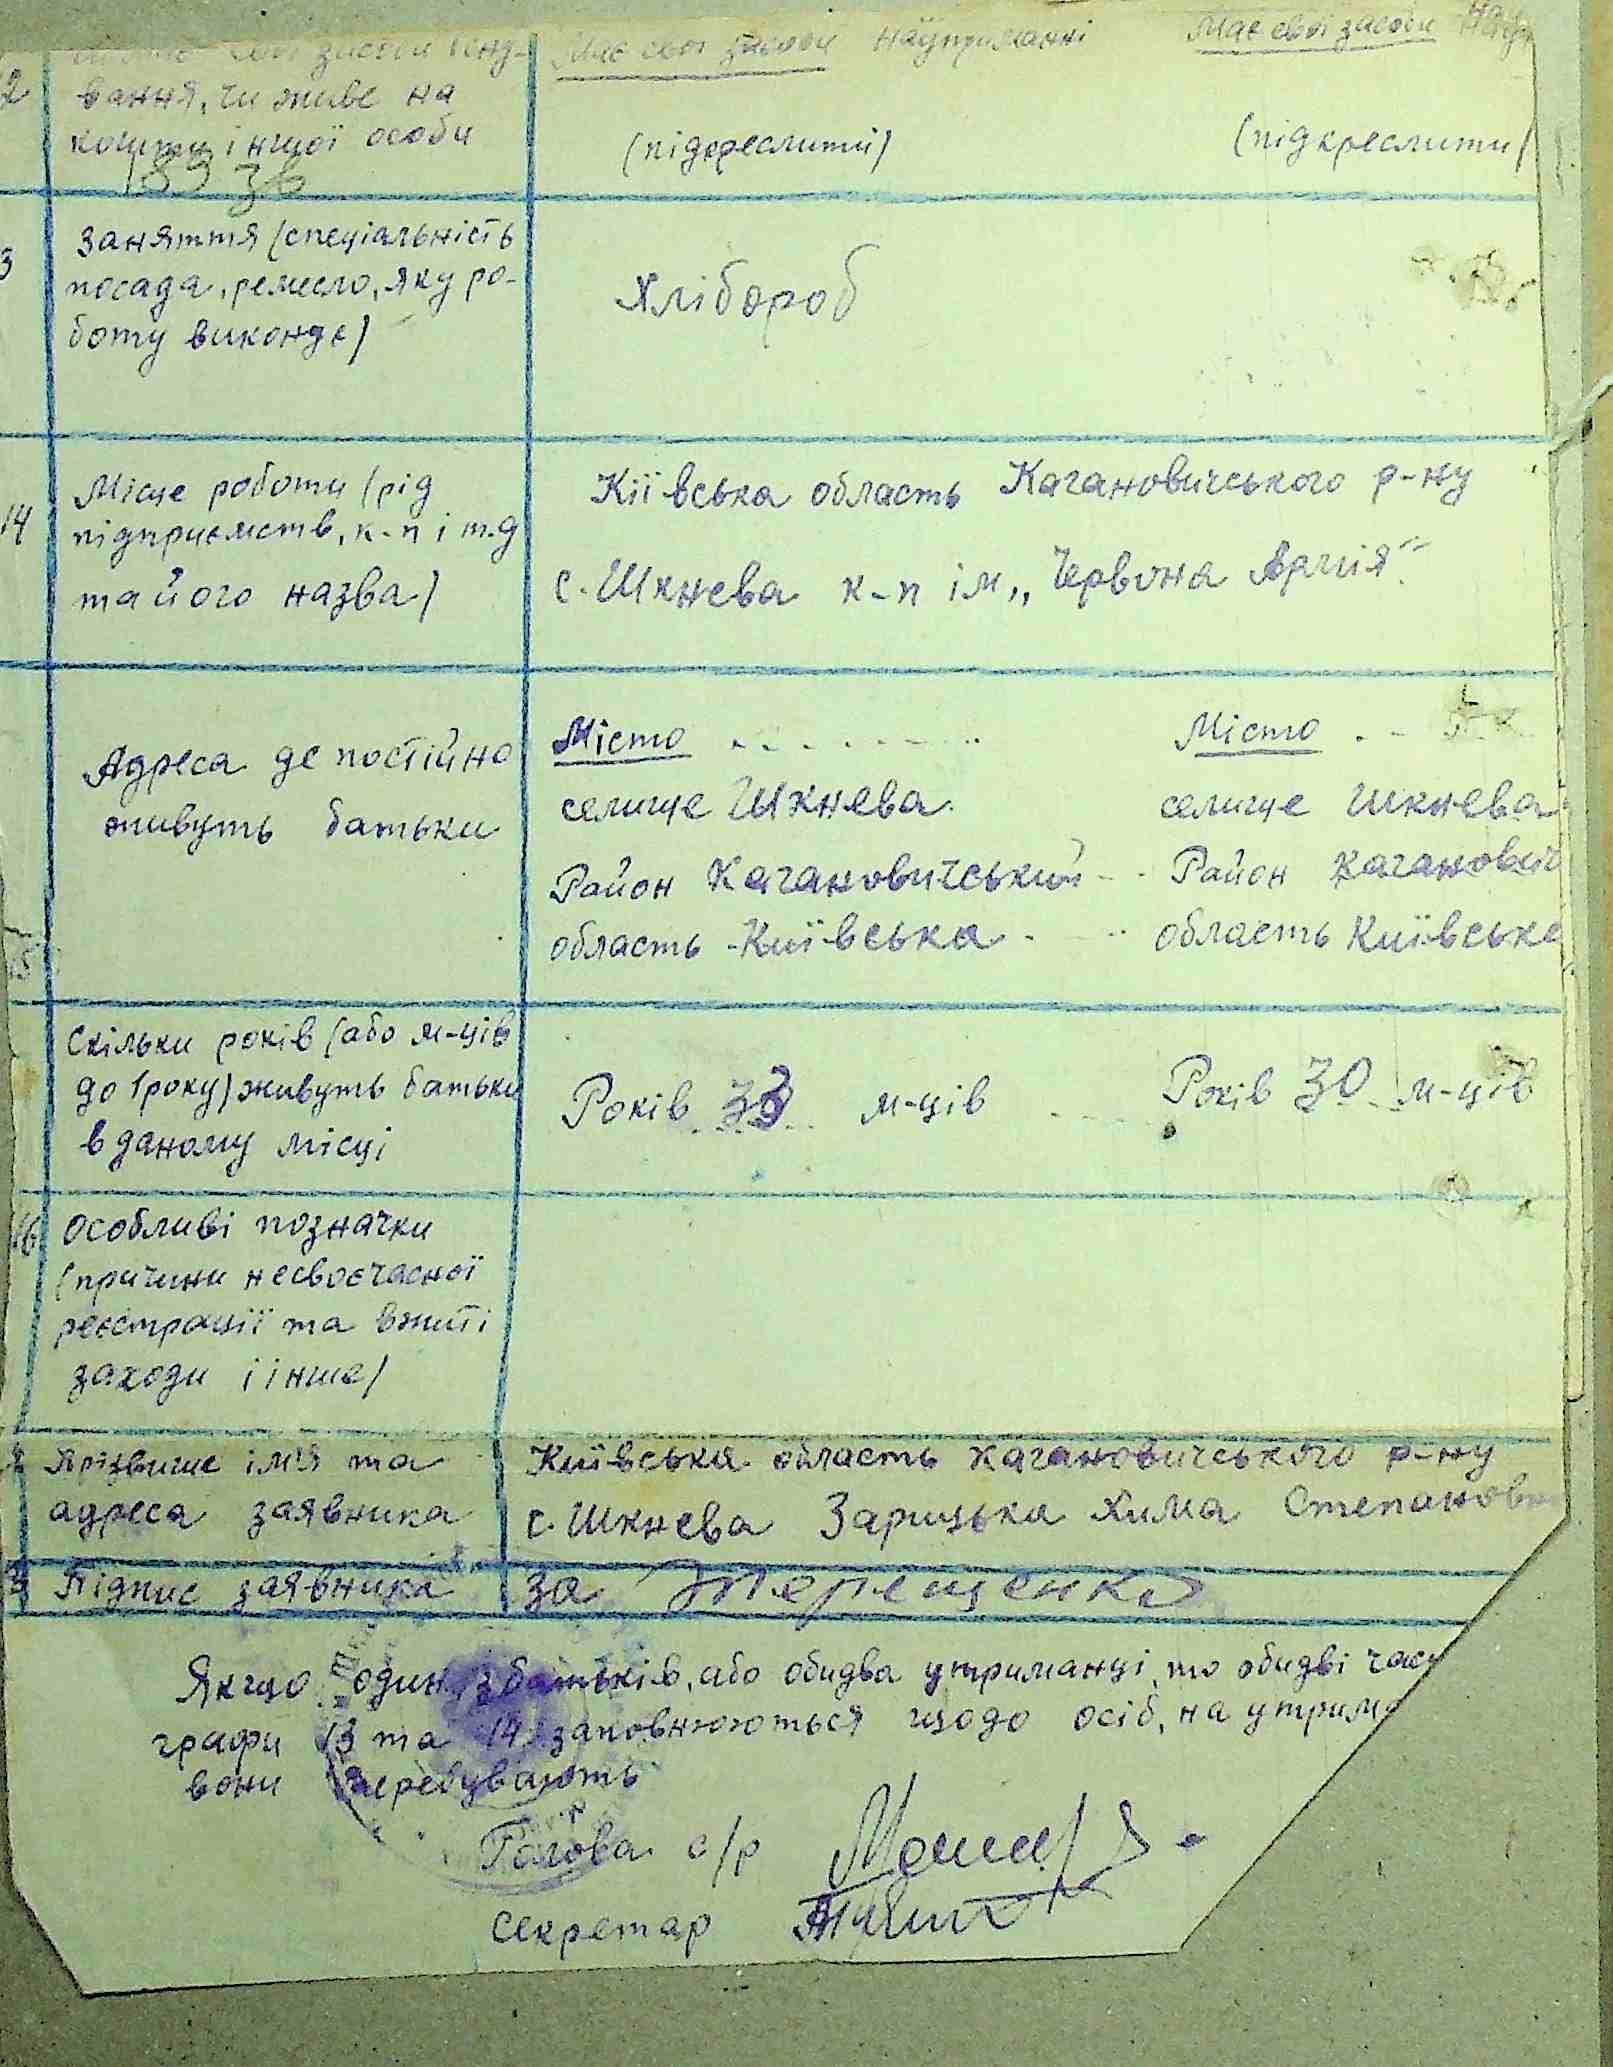 Має свої засоби на утриманні Має свої засоби
2 вання, чи живе на
кошти іншої особи
(підкреслити) (підкреслити)
3 Заняття (спеціальність
посада, ремесло, яку ро-
боту виконує)
Хлібороб
14 Місце роботи (рід
підприємств, к-п і т.д
та його назва)
Київська область Кагановичського р-ну
с. Шкнева к-п ім „Червона Армія"
Адреса де постійно
живуть батьки
Місто Місто
селище Шкнева. селище Шкнева
Район Кагановичський Район Каганович
область Київська область Київська
15
Скільки років (або м-ців
до 1 року) живуть батьки
в даному місці
Років 33 м-ців Років 30 м-ців
16 Особливі позначки
(причини несвоєчасної
реєстрації та вжиті
заходи і інше)
Прізвище ім'я та
адреса заявника
Київська область Кагановичського р-ну
с. Шкнева Зарицька Хима Степановн
Підпис заявника
за Терещенко
Якщо один з батьків, або обидва утриманці, то обидві час
графи 13 та 14 заповнюються щодо осіб, на утрим
вони перебувають
Голова с/р
Секретар